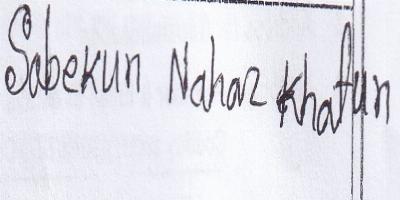 Sabekun Nahar Khatun